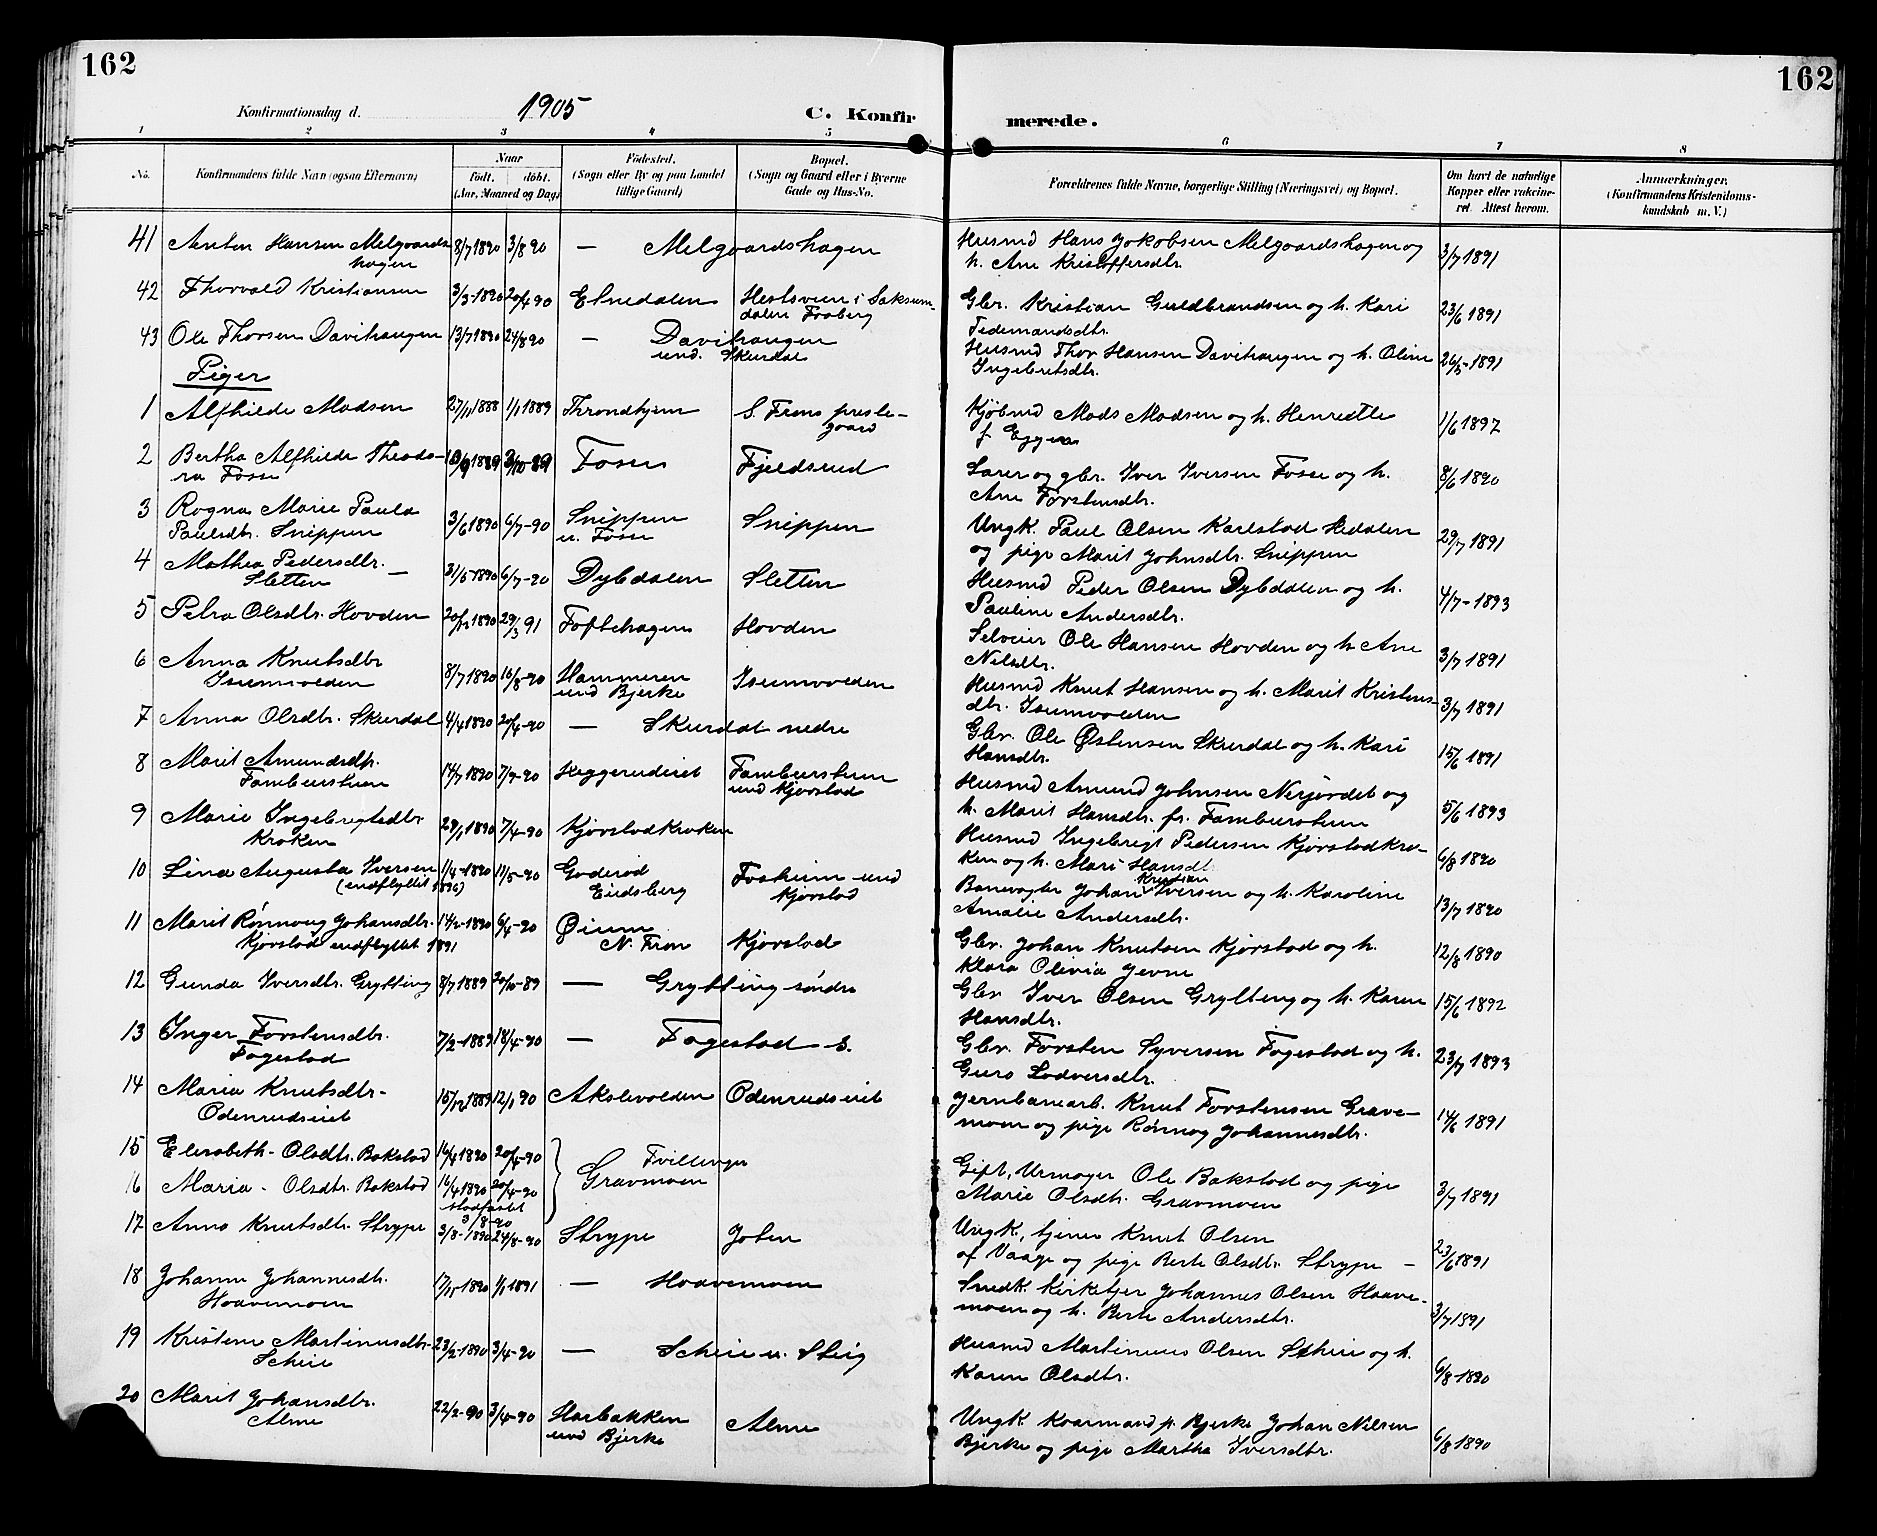 162
162
Konfirmationsdag d. 1905
C. Konfir
merede.
1 2 3 4 5 6 7 8
No.
Konfirmandens fulde Navn (ogsaa Efternavn)
Naar
født. døbt.
(Aar, Maaned og Dag)
Födested.
(Sogn eller By og paa Landet
tillige Gaard)
Bopæl.
(Sogn og Gaard eller i Byerne
Gade og Hus-No.
Forældrenes fulde Navne, borgerlige Stilling (Næringsvei) og Bopæl.
Om havt de naturlige
Kopper eller vaccine-
ret. Attest herom.
Anmærkninger,
(Konfirmandens Kristendoms-
kundskab m. V.)
41 Anton Hansen Melgaards- 8/7 1890 3/8 90 — Melgaardshagen Husmd Hans Jakobsen Melgaardshagen og 3/7 1891
hagen h. Ane Kristoffersdtr.
42 Thorvald Kristiansen 3/3-1890 20/4 90 Etnedalen Hestsveen i Saksum- Gbr. Kristian Guldbrandsen og h. Kari 23/6 1891
dalen Faaberg
43 Ole Thorsen Davihaugen 13/7 1890 24/8 90 — Davihaugen Husmd Thor Hansen Davihaugen og h. Oline 26/5-1891
und. Skurdal Ingebretsdtr.
Piger
1 Alfhilde Madsen 27/11 1888 1/1 1889 Throndhjem S. Frons preste- Kjøbmd Mads Madsen og h. Henriette 1/6 1897
gaard f. Eggen
2 Bertha Alfhilde Theodo- 1889 3/10-89 Fosse Fjeldseid Larer og gbr. Iver Iversen Fosse og h. 8/6 1890
ra Fosse Ane Torstensdtr.
3 Ragna Marie Paula 3/6 1890 6/7-90 Snippen Snippen Ungk. Paul Olsen Karlstad Hedalen 29/7 1891
Paulsdtr. Snippen u. Fosse og pige Marit Johnsdtr. Snippen
4 Mathea Pedersdtr. — 31/5 1890 6/7-90 Dybdalen Sletten Husmd Peder Olsen Dybdalen og h. 4/7-1893
Sletten Pauline Andersdtr.
5 Petra Olsdtr. Hovden 20/12 1890 29/3 91 Toftehagen Hovden Selveier Ole Hansen Hovden og h. Ane 3/7 1891
Nilsdtr.
6 Anna Knutsdtr 8/7 1890 16/8-90 Hammeren Isumvolden Husmd Knut Hansen og h. Marit Kristens- 3/7 1891
Isumvolden und Bjerke dtr. Isumvolden
7 Anna Olsdtr. Skurdal 4/4 1890 20/4-90 — Skurdal nedre Gbr. Ole Østensen Skurdal og h. Kari 15/6 1891
Hansdtr.
8 Marit Amundsdtr. 14/7 1890 7/9-90 Heggerudeiet Tamburstuen Husmd Amund Johnsen Nerjordet og 5/6 1893
Tamburstuen und Kjorstad h. Marit Hansdtr. fr. Tamburstuen
9 Marie Ingebrigtsdtr 29/1 1890 7/4-90 Kjorstadkroken Husmd Ingebrigt Pedersen Kjorstadkro- 6/8 1890
Kroken ken og h. Mari Hansdt
10 Lina Augusta Iversen 11/4-1890 11/5-90 Goderød Foskum und Banevogter Johan Kristian Iversen og h. Karoline 13/7 1890
(indflyttet 1896) Eidsberg Kjorstad Amalie Andersdtr.
11 Marit Rønnoug Johansdtr. 14/2-1890 6/4-90 Øium Kjorstad Gbr. Johan Knutsen Kjorstad og h. 12/8 1890
Kjorstad indflyttet 1891 N. Fron Klara Olivia Jevne
12 Gunda Iversdtr. Grytting 8/7 1889 20/10-89 — Grytting søndre Gbr Iver Olsen Grytting og h. Karen 15/6 1892
Hansdtr.
13 Inger Torstensdtr. 7/2-1889 18/4-90 — Fogestad s. Gbr. Torsten Syversen Fogestad og h. 23/7 1893
Fogestad Guro Lodversdtr.
14 Maria Knutsdtr- 15/12 1889 12/1 90 Akslevolden Odenrudseiet Jernbanearb. Knut Torstensen Grave- 14/6 1891
Odenrudseiet moen og pige Rønnog Johannesdtr.
15 Elisabeth- Olsdtr. Bakstad 16/4 1890 20/4-90 Tvillinger
16 Maria- Olsdtr. Bakstad 16/4 1890 20/4-90 Gravmoen Gift, Urmager Ole Bakstad og pige 3/7 1891
stadfæstet Marie Olsdtr. Gravmoen
3/8-90
17 Anna Knutsdtr. Strype 3/8-1890 24/8-90 Strype Joten Ungk, tjener Knut Olsen 23/6 1891
af Vaage og pige Berte Olsdtr. Strype —
18 Johanne Johannesdtr. 17/11-1890 1/1 1891 — Haavemoen Snedk. Kirketjer Johannes Olsen Haave- 3/7 1891
Haavemoen moen og h. Berte Andersdtr.
19 Kristine Martinusdtr- 23/2-1890 3/4-90 — Scheie u. Steig Husmd Martinus Olsen Scheie og h. 6/8-1890
Scheie Karen Olsdtr.
20 Marit Johansdtr. 22/2-90 3/4-90 Harbakken Alme Ungk Kaarmand p. Bjerke Johan Nilsen 6/8 1890
Alme und Bjerke Bjerke og pige Marthe Iversdtr.